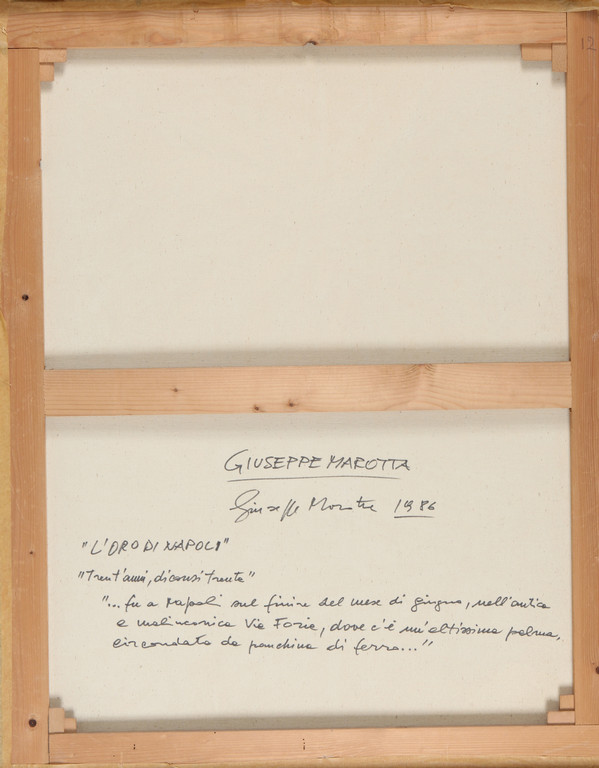 12
GIUSEPPE MAROTTA
Giuseppe Marotta 1986
"L'ORO DI NAPOLI"
"Trent'anni, diconsi trenta"
"... fu a Napoli sul finire del mese di giugno, nell'antica
e malinconica Via Foria, dove c'è un'altissima palma,
circondata da panchine di ferro..."